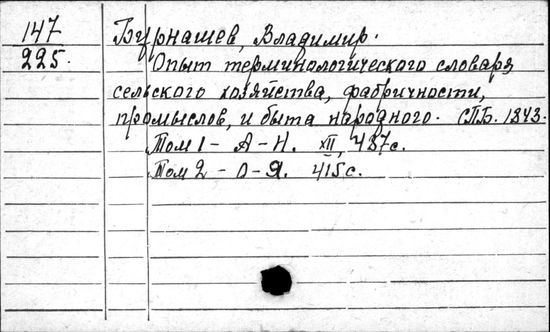 147
225.
Бурнашев, Владимир.
Опыт терминологического словаря
сельского хозяйства, фабричности,
промыслов, и быта народного. СПБ. 1843.
Том 1 - А-Н. XII, 487с.
Том 2 - О-Я. 415с.